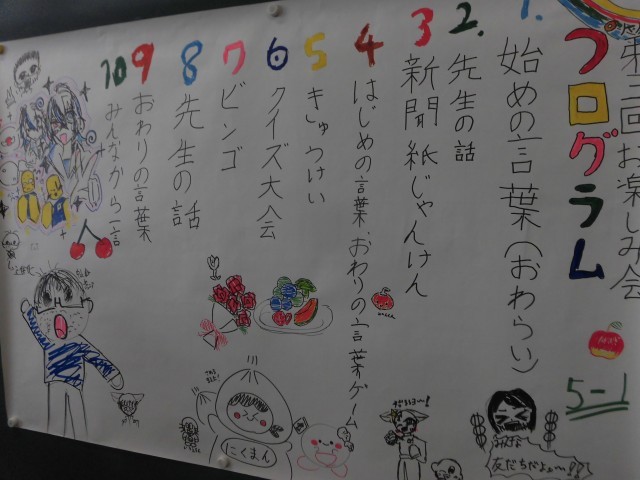 第三回お楽しみ会
プログラム
1. 始めの言葉(おわらい)
2. 先生の話
3 新聞紙じゃんけん
4 はじめの言葉、おわりの言葉ゲーム
5 きゅうけい
6 クイズ大会
7 ビンゴ
8 先生の話
9 おわりの言葉
10 みんなから一言
5-1
友だちだよぉ〜!!
にくまん